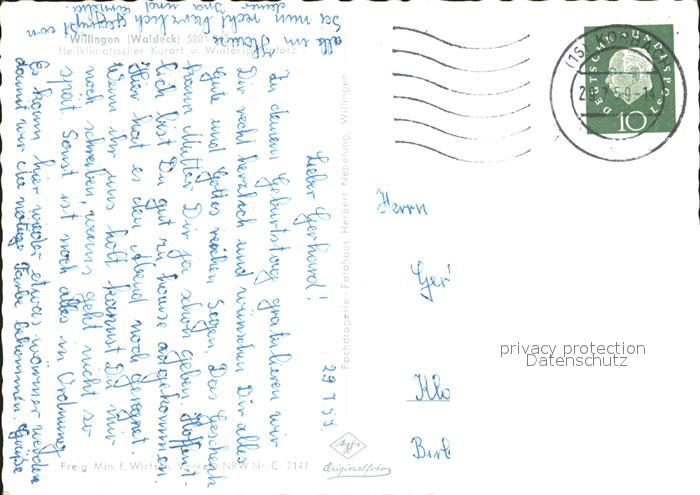 Willingen (Waldeck) 580
Heilklimatischer Kurort u. Wintersportplatz
29.7.59
Lieber Gerhard!
Zu deinem Geburtstag gratulieren wir
Dir recht herzlich und wünschen Dir alles
Gute und Gottes reichen Segen. Das Geschenk
kann Mutter Dir ja schon geben. Hoffent-
lich bist Du gut zu hause angekommen.
Hier hat es den Abend noch geregnet.
Wenn ihr uns holt kannst Du mir
noch schreiben, wanns geht nicht so
spät. Sonst ist noch alles in Ordnung
Es kann hier wieder etwas wärmer werden
damit wir die nötige Farbe bekommen. Grüße
alle im Hause
Sei nun recht herzlich gegrüßt von
deiner und
Fachdrogerie - Fotohaus Herbert Nebelung, Willingen
Freig. Min. f. Wirtsch. u. Verkehr NRW Nr. C 7143
Agfa
Originalfoto
DEUTSCHE BUNDESPOST
10
Herrn
Ger
Klo
Birk
privacy protection
Datenschutz